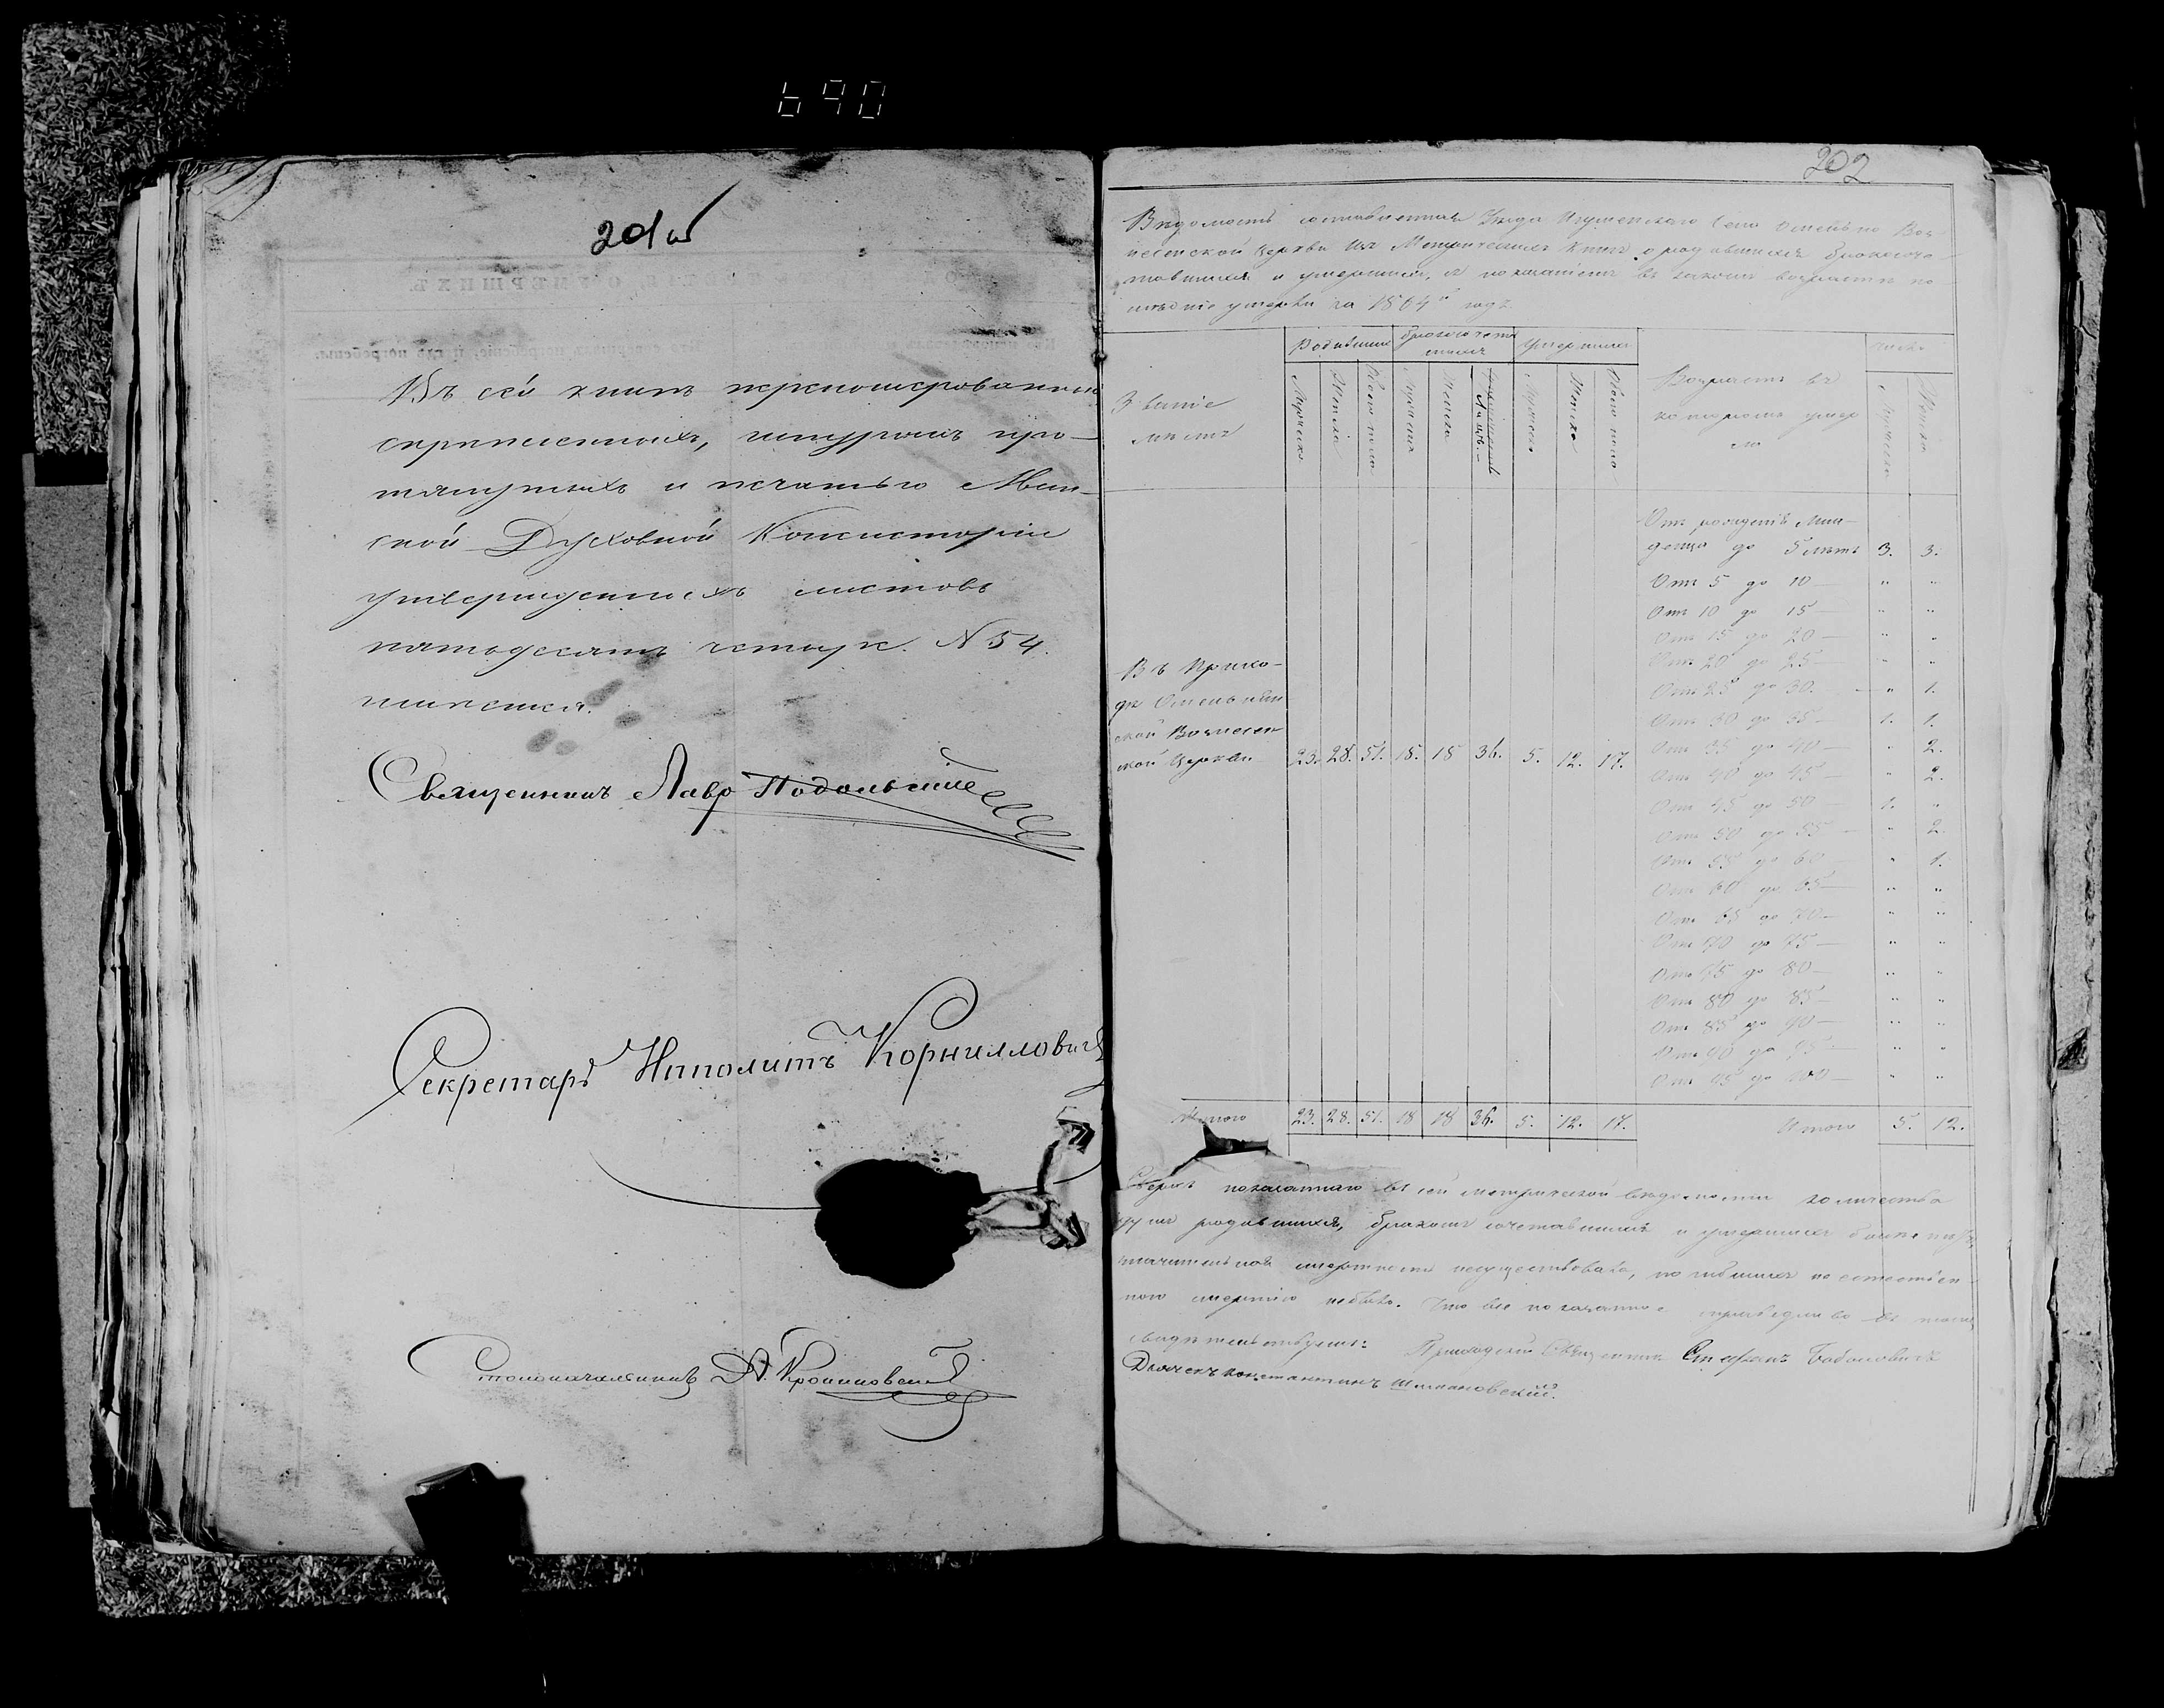 690
201 об
Въ сей книгѣ перенумерованныхъ
скрѣпленныхъ, шнуромъ про-
тянутыхъ и печатью Мин-
ской Духовной Консисторіи
утвержденныхъ листовъ
пятьдесятъ четыре. N 54.
имѣется.
Священникъ Лавр Подольскій
Секретарь Ипполитъ Корниловичъ
Столоначальникъ
202
Вѣдомость составленная Уѣзда Игуменскаго Села Омельно Воз-
несенской Церкви изъ Метрическихъ Книгъ о родившихся бракосоче-
тавшихся и умершихъ, съ показаніемъ въ какомъ возрастѣ по
слѣдніе умерли за 1864й годъ
Званіе
мѣстъ
Родившихся
бракосочета
вшихся
Умершихъ
Возрастъ въ
которомъ умер
ли
число
Мужеска
Женска
Обоего пола
Мужеска
Женска
Лицъ.
Мужеска
Женска
Обоего пола
Мужеска
Женска
Отъ рожденія мла-
денца до 5 лѣтъ 3. 3.
Отъ 5 до 10 — " "
Отъ 10 до 15 — " "
Отъ 15 до 20 — " "
Отъ 20 до 25 — " "
Отъ 25 до 30. — " 1.
Отъ 30 до 35 — 1. 1.
Отъ 35 до 40 — " 2.
Отъ 40 до 45 — " 2.
Отъ 45 до 50 — 1. "
Отъ 50 до 55 — " 2.
Отъ 55 до 60 — " 1.
Отъ 60 до 65 — " "
Отъ 65 до 70 — " "
Отъ 70 до 75 — " "
Отъ 75 до 80 — " "
Отъ 80 до 85 — " "
Отъ 85 до 90 — " "
Отъ 90 до 95 — " "
Отъ 95 до 100 — " "
Въ Прихо-
дѣ Омельнян
ской Вознесен
ской Церкви 23. 28. 51. 18. 18 36. 5. 12. 17.
Итого 23. 28. 51. 18 18 36. 5. 12. 17. Итого 5. 12.
Сверхъ показаннаго въ сей метрической вѣдомости количества
душъ родившихся, бракомъ сочетавшихся и умершихъ
значительной смертности несуществовало, погибшихъ не естествен
ною смертію небыло. Что все показанное справедливо въ томъ
свидѣтельствуемъ: Приходскій Священникъ Стефанъ
Дьячекъ Константинъ